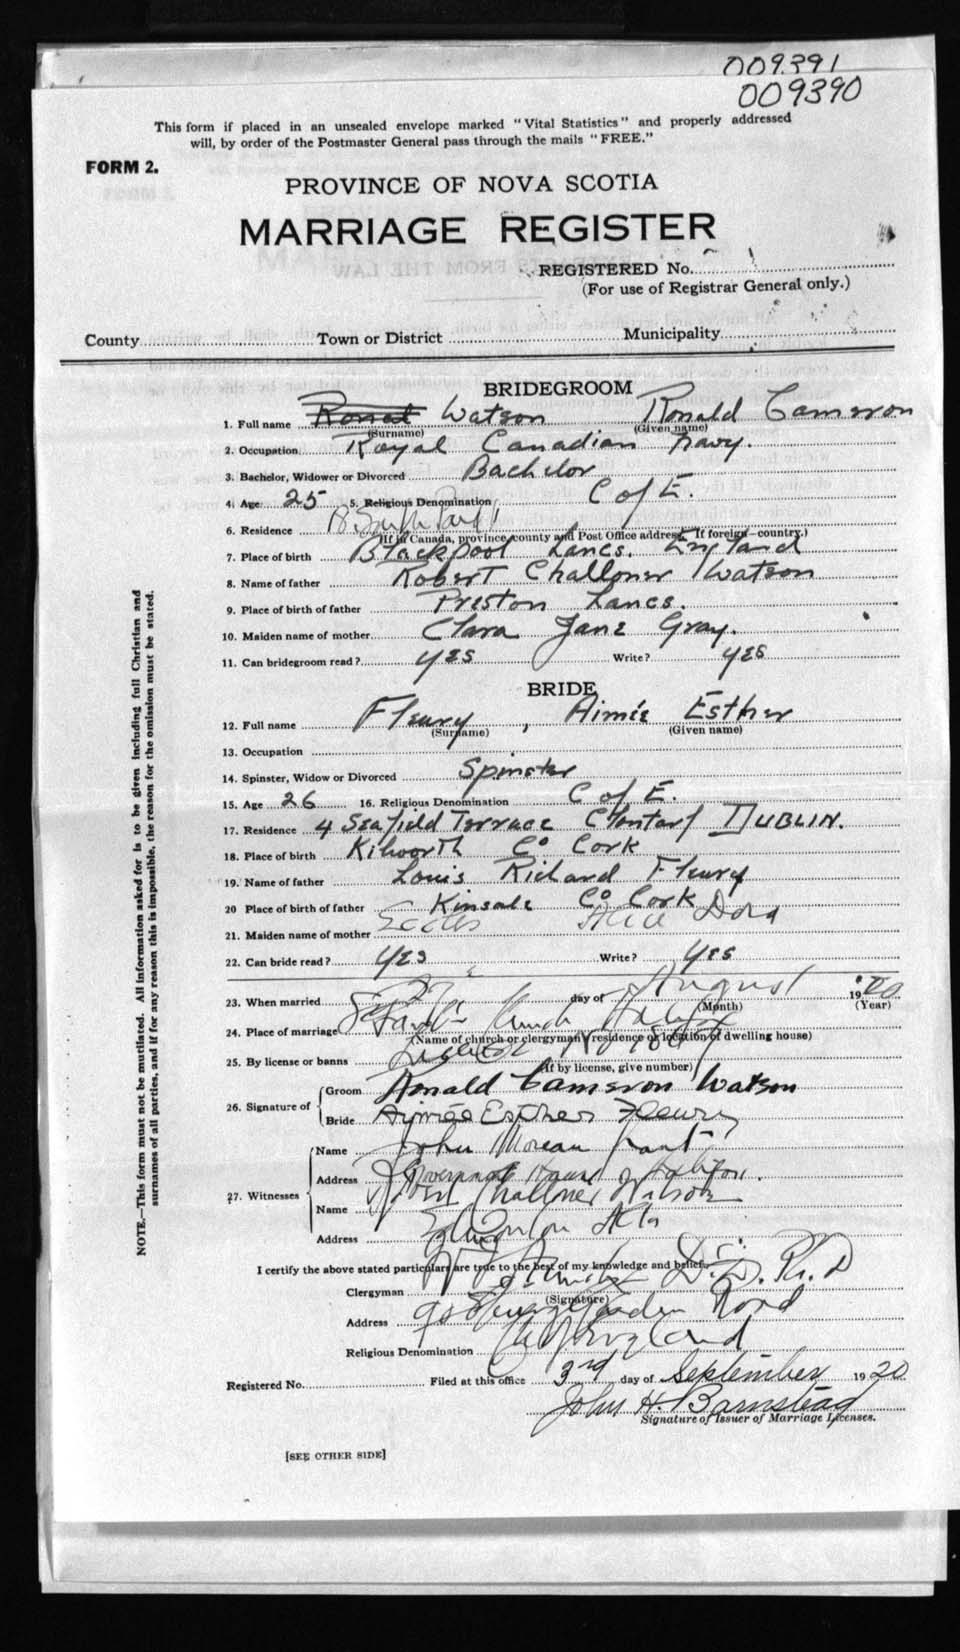 009391
009390
This form if placed in an unsealed envelope marked "Vital Statistics" and properly addressed
will, by order of the Postmaster General pass through the mails "FREE."
FORM 2.
PROVINCE OF NOVA SCOTIA
MARRIAGE REGISTER
REGISTERED No.
(For use of Registrar General only.)
County Town or District Municipality
BRIDEGROOM
1. Full name Watson Ronald Cameron
(Surname) (Given name)
2. Occupation Royal Canadian Navy.
3. Bachelor, Widower or Divorced Bachelor
4. Age 25 5. Religious Denomination C of E.
6. Residence 18
(If in Canada, province, county and Post Office address. If foreign—country.)
7. Place of birth Blackpool Lancs. England
8. Name of father Robert Challoner Watson
9. Place of birth of father Preston Lancs.
10. Maiden name of mother Clara Jane Gray.
11. Can bridegroom read? yes Write? yes
BRIDE
12. Full name Fleury, Aimée Esther
(Surname) (Given name)
13. Occupation
14. Spinster, Widow or Divorced Spinster
15. Age 26 16. Religious Denomination C of E.
17. Residence 4 Seafield Terrace Clontarf DUBLIN.
18. Place of birth Kilworth Co Cork
19. Name of father Louis Richard Fleury
20 Place of birth of father Kinsale Co Cork
21. Maiden name of mother Alice Dora
22. Can bride read? yes Write? yes
23. When married day of August 1920
(Month) (Year)
24. Place of marriage St Paul's Church Halifax
(Name of church or clergyman's residence or location of dwelling house)
25. By license or banns License No
(If by license, give number)
26. Signature of Groom Ronald Cameron Watson
Bride Aimée Esther Fleury
27. Witnesses Name John
Address Government House Halifax.
Name Robert Challoner Watson
Address Edmonton Alta
I certify the above stated particulars are true to the best of my knowledge and belief.
Clergyman D.D. Ph.D
(Signature)
Address 90 Road
Religious Denomination C of England
Registered No. Filed at this office 3rd day of September 1920
John H. Barnstead
Signature of Issuer of Marriage Licenses.
[SEE OTHER SIDE]
NOTE.—This form must not be mutilated. All information asked for is to be given including full Christian and
surnames of all parties, and if for any reason this is impossible, the reason for the omission must be stated.